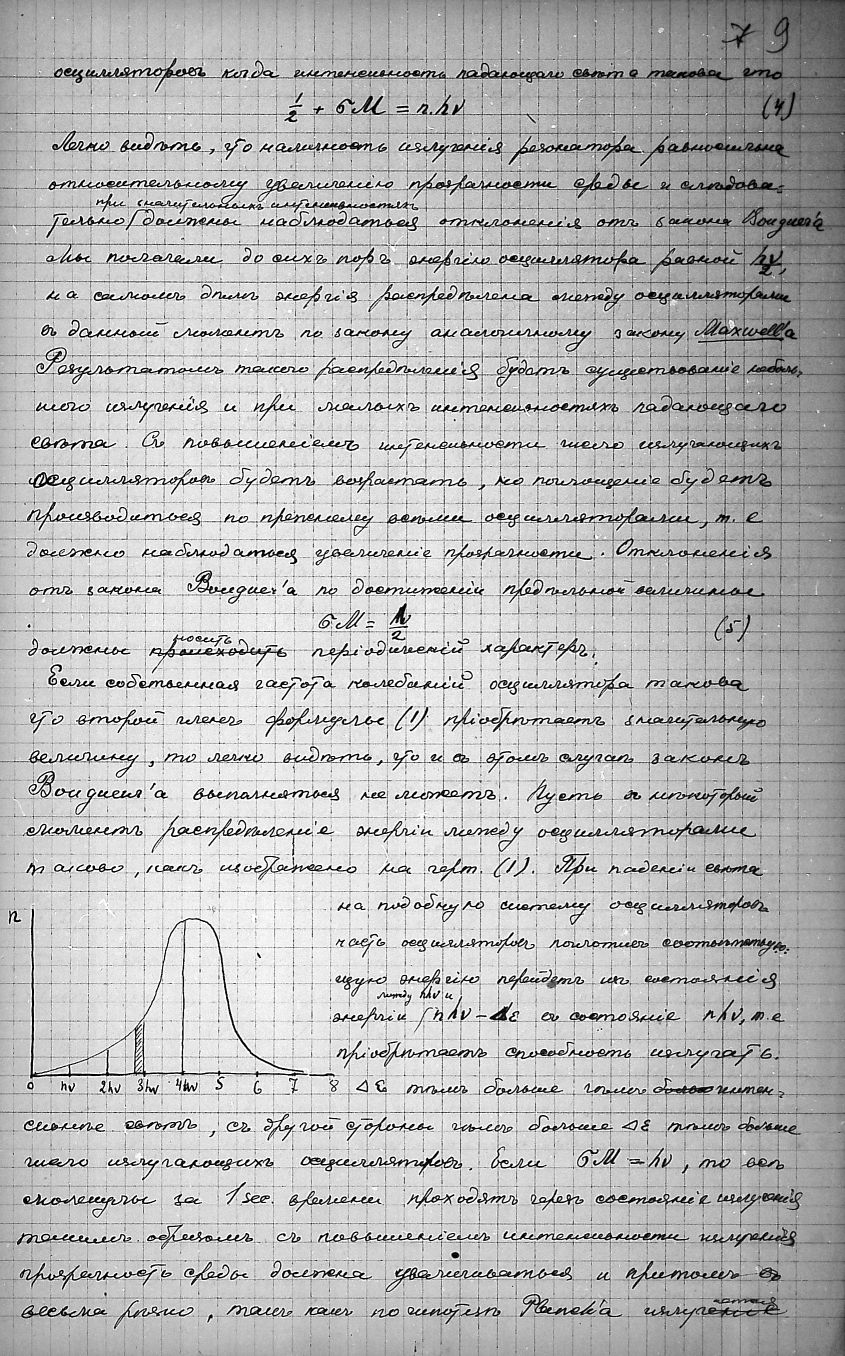 7 9
осцилляторовъ когда интенсивность падающаго свѣта такова что
1/2 + σM = n.hν (4)
Легко видѣть, что наличность излученія резонатора равносильна
относительному увеличенію прозрачности среды и слѣдова-
при значительныхъ интенсивностяхъ
тельно должны наблюдаться отклоненія отъ закона Bouguer'а
Мы полагали до сихъ поръ энергію осциллятора равной hν/2,
на самомъ дѣлѣ энергія распредѣлена между осцилляторами
въ данный моментъ по закону аналогичному закону Maxwell'а
Результатомъ такого распредѣленія будетъ существованіе неболь-
шого излученія и при малыхъ интенсивностяхъ падающаго
свѣта. Съ повышеніемъ интенсивности число излучающихъ
осцилляторовъ будетъ возрастать, но поглощеніе будетъ
производиться по прежнему всѣми осцилляторами, т. е
должно наблюдаться увеличеніе прозрачности. Отклоненія
отъ закона Bouguer'а по достиженіи предѣльной величины
σM = hν/2 (5)
носить
должны происходить періодическій характеръ.
Если собственная частота колебаній осциллятора такова
что второй членъ формулы (1) пріобрѣтаетъ значительную
величину, то легко видѣть, что и въ этомъ случаѣ законъ
Bouguer'а выполняться не можетъ. Пусть въ нѣкоторый
моментъ распредѣленіе энергіи между осцилляторами
таково, какъ изображено на черт. (1). При паденіи свѣта
на подобную систему осцилляторовъ
часть осцилляторовъ поглотивъ соотвѣтствую-
щую энергію перейдетъ изъ состоянія
между nhν и
энергіи nhν − Δε въ состояніе nhν, т. е
пріобрѣтаетъ способность излучать.
n
0 hν 2hν 3hν 4hν 5 6 7 8
Δε тѣмъ больше чѣмъ интен-
сивнѣе свѣтъ, съ другой стороны чѣмъ больше Δε тѣмъ больше
число излучающихъ осцилляторовъ. Если σM = hν, то всѣ
молекулы за 1 sec. времени проходятъ черезъ состояніе излученія
такимъ образомъ съ повышеніемъ интенсивности излученія
прозрачность среды должна увеличиваться и притомъ
весьма рѣзко, такъ какъ по гипотезѣ Planck'а излученіе